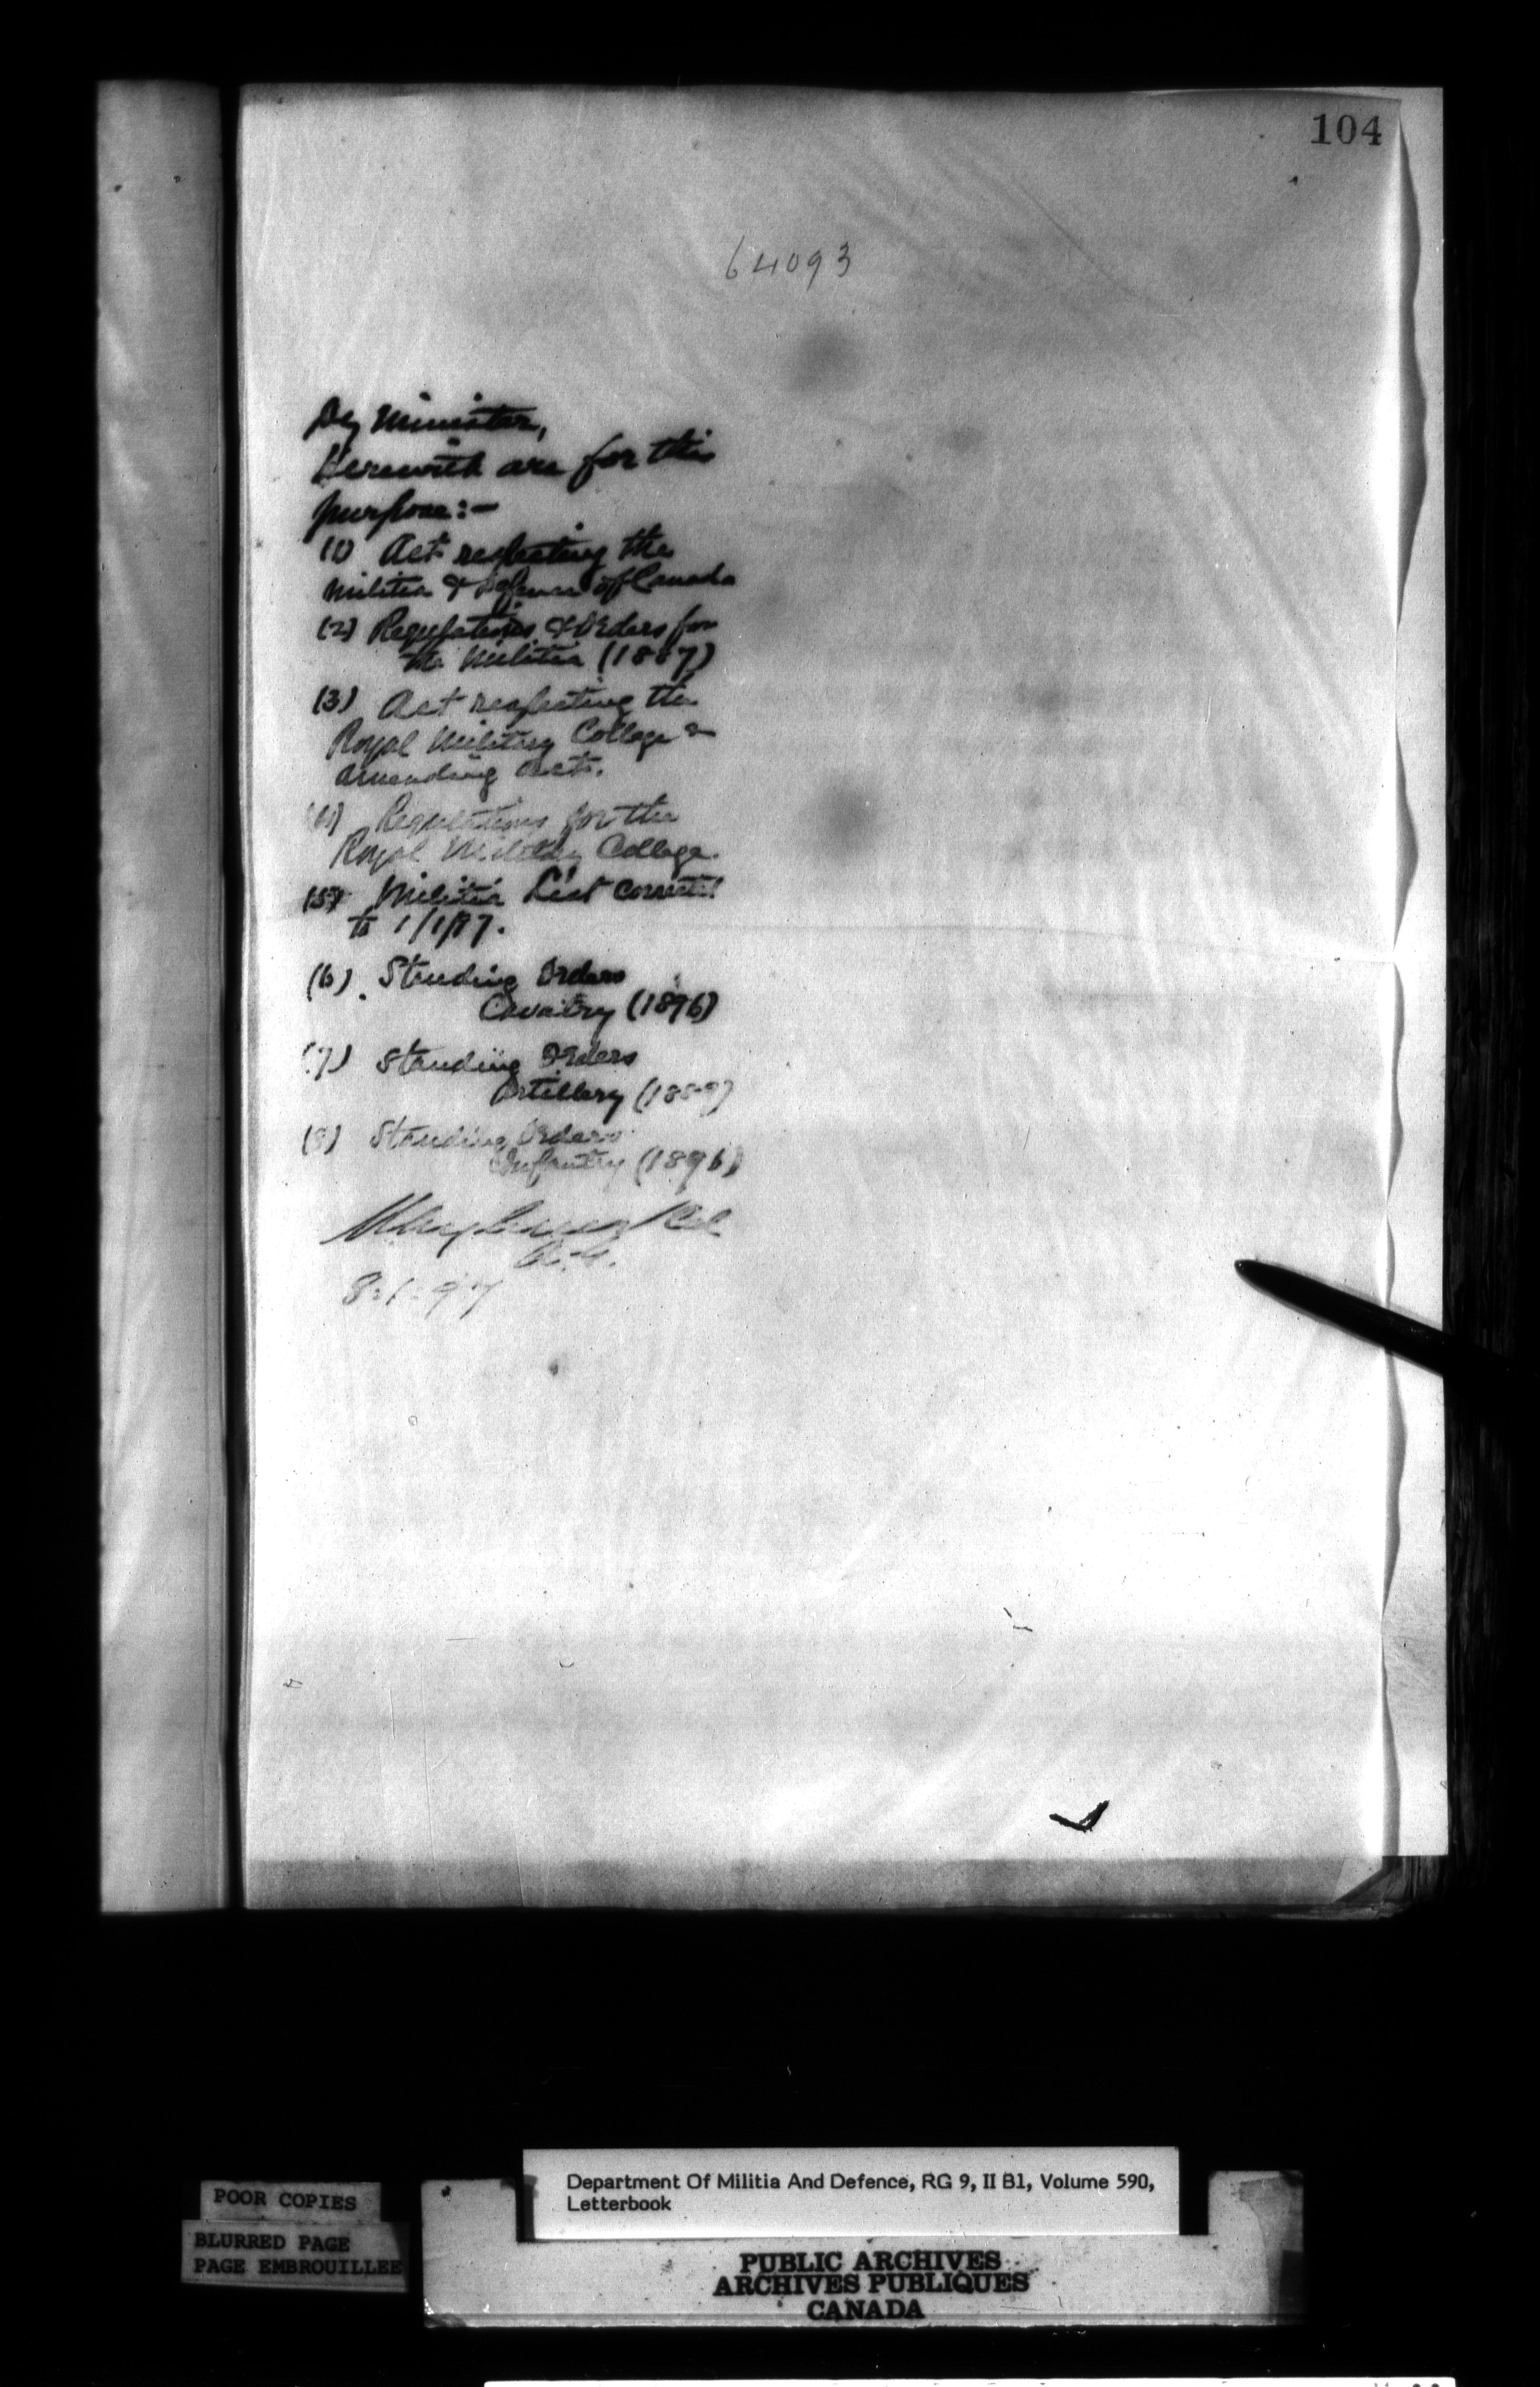 104
64093
Dy Minister,
Herewith are for this
purpose:-
(1) Act respecting the
Militia & Defence of Canada
(2) Regulations & Orders for
the Militia (1887)
(3) Act respecting the
Royal Military College &
amending acts.
(4) Regulations for the
Royal Military College.
(5) Militia List corrected
to 1/1/97.
(6) Standing Orders
Cavalry (1896)
(7) Standing Orders
Artillery
(8) Standing Orders
Infantry (1896)
Col
A.G.
8.1.97
POOR COPIES
BLURRED PAGE
PAGE EMBROUILLEE
Department Of Militia And Defence, RG 9, II B1, Volume 590,
Letterbook
PUBLIC ARCHIVES
ARCHIVES PUBLIQUES
CANADA